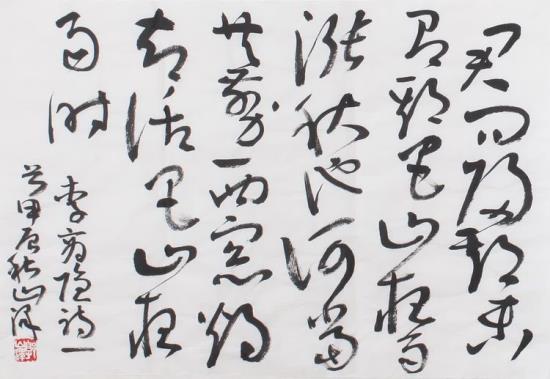 君问归期未
有期巴山夜雨
涨秋池何当
共剪西窗烛
却话巴山夜
雨时
李商隐诗一
首甲秋山